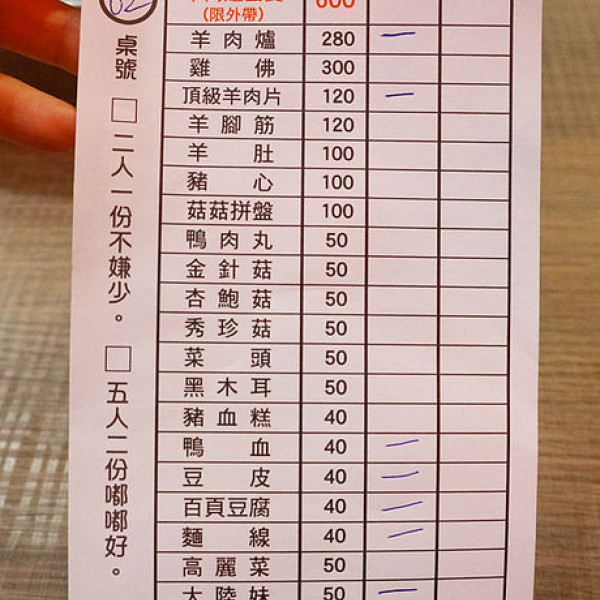 62
桌號
□二人一份不嫌少。
□五人二份嘟嘟好。
(限外帶) 600
羊肉爐 280 一
雞佛 300
頂級羊肉片 120 一
羊腳筋 120
羊肚 100
豬心 100
菇菇拼盤 100
鴨肉丸 50
金針菇 50
杏鮑菇 50
秀珍菇 50
菜頭 50
黑木耳 50
豬血糕 40
鴨血 40 一
豆皮 40 一
百頁豆腐 40 一
麵線 40 一
高麗菜 50
大陸妹 50 一